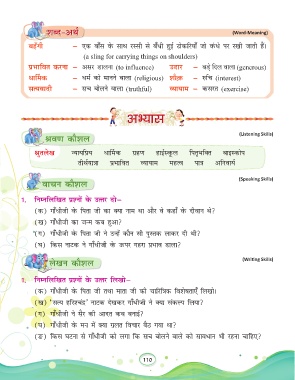 शब्द-अर्थ (Word-Meaning)
बहँगी – एक बाँस के साथ रस्सी से बँधी हुई टोकरियाँ जो कंधे पर रखी जाती हैं।
(a sling for carrying things on shoulders)
प्रभावित करना – असर डालना (to influence) उदार – बड़े दिल वाला (generous)
धार्मिक – धर्म को मानने वाला (religious) शौक – रुचि (interest)
सत्यवादी – सच बोलने वाला (truthful) व्यायाम – कसरत (exercise)
अभ्यास
श्रवण कौशल (Listening Skills)
श्रुतलेख न्यायप्रिय धार्मिक ग्रहण हाईस्कूल पितृभक्ति बाइस्कोप
तीर्थयात्रा प्रभावित व्यायाम महत्व पात्र अनिवार्य
वाचन कौशल (Speaking Skills)
1. निम्नलिखित प्रश्नों के उत्तर दो–
(क) गाँधीजी के पिता जी का क्या नाम था और वे कहाँ के दीवान थे?
(ख) गाँधीजी का जन्म कब हुआ?
(ग) गाँधीजी के पिता जी ने उन्हें कौन सी पुस्तक लाकर दी थी?
(घ) किस नाटक ने गाँधीजी के ऊपर गहरा प्रभाव डाला?
लेखन कौशल (Writing Skills)
2. निम्नलिखित प्रश्नों के उत्तर लिखो–
(क) गाँधीजी के पिता जी तथा माता जी की चारित्रिक विशेषताएँ लिखो।
(ख) 'सत्य हरिश्चंद्र' नाटक देखकर गाँधीजी ने क्या संकल्प लिया?
(ग) गाँधीजी ने सैर की आदत कब बनाई?
(घ) गाँधीजी के मन में क्या गलत विचार बैठ गया था?
(ङ) किस घटना से गाँधीजी को लगा कि सच बोलने वाले को सावधान भी रहना चाहिए?
110